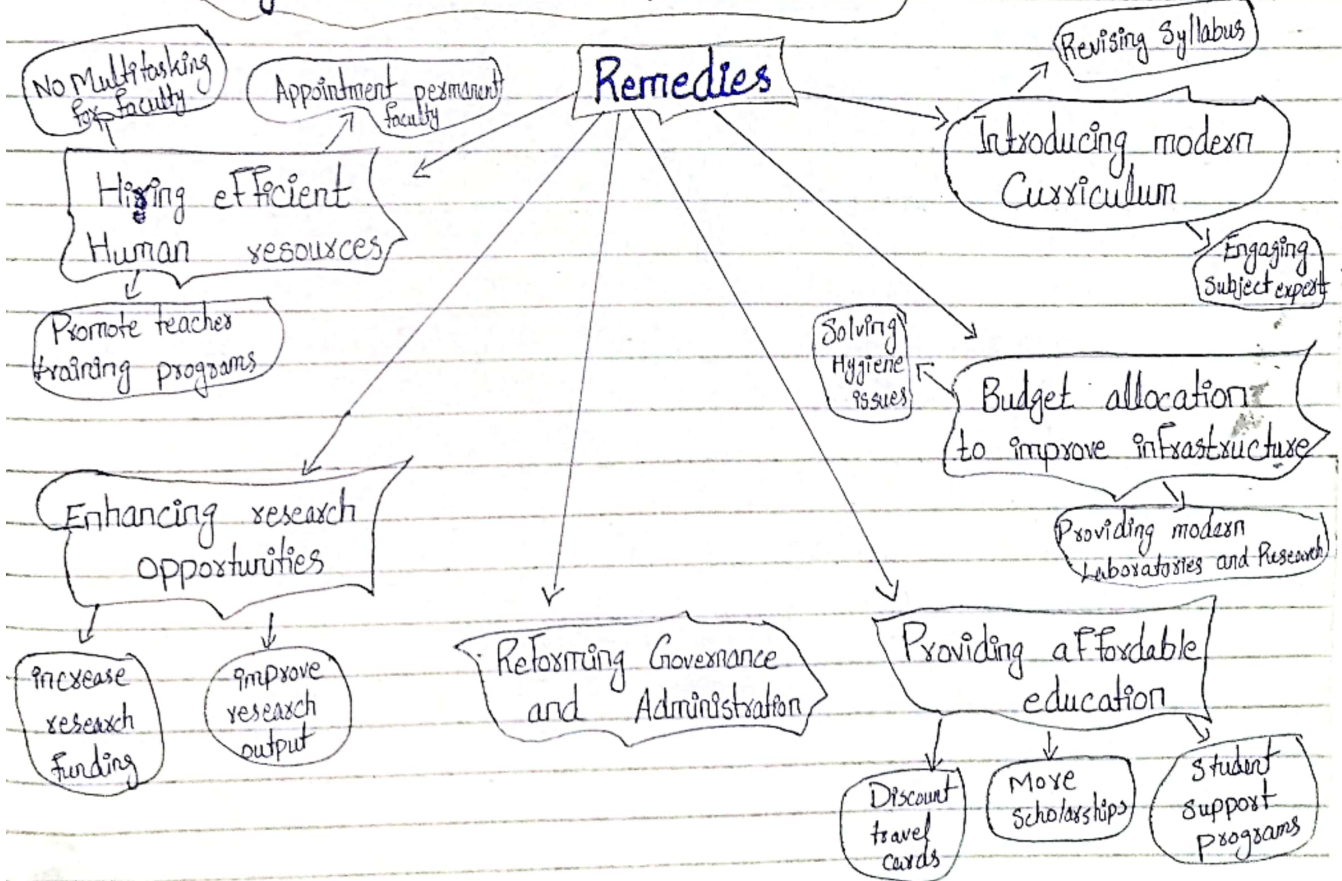 Remedies
No Multitasking
for faculty
Appointment permanent
faculty
Hiring efficient
Human resources
Promote teacher
training programs
Revising Syllabus
Introducing modern
Curriculum
Engaging
Subject expert
Solving
Hygiene
issues
Budget allocation
to improve infrastructure
Providing modern
Laboratories and Research
Enhancing research
opportunities
increase
research
funding
improve
research
output
Reforming Governance
and Administration
Providing affordable
education
Discount
travel
cards
More
Scholarships
Student
Support
Programs